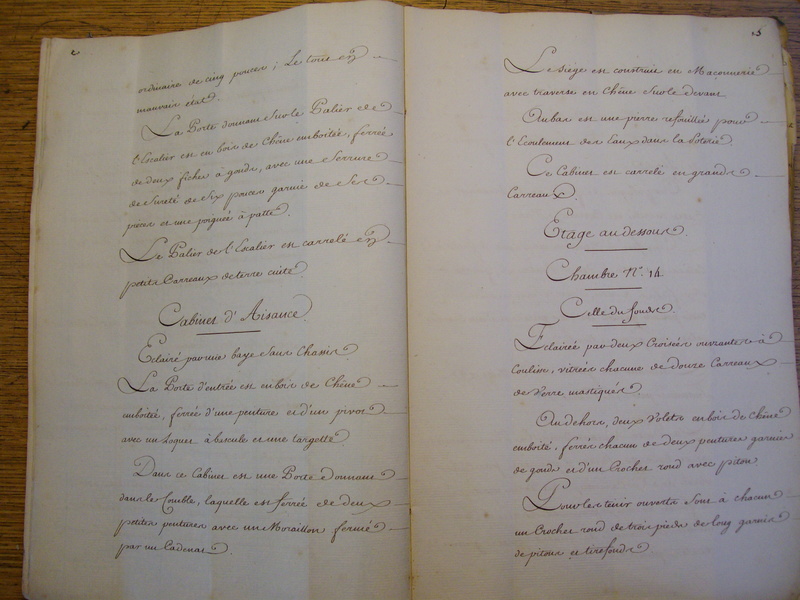 ordinaire de cinq pouces ; Le tout en
mauvais etat.
La Porte donnant sur le Palier de
l'Escalier est en bois de Chêne emboitée, ferrée
de deux fiches à gonds, avec une Serrure
de Sureté de Six pouces garnie de Ses
pieces et une poignée à patte.
Le Palier de l'Escalier est carrelé en
petits Carreaux de terre cuite.
Cabinet d'Aisance.
Eclairé par une baye Sans Chassis
La Porte d'entrée est en bois de Chêne
emboitée, ferrée d'une penture et d'un pivot
avec un Loquet à bascule et une targette
Dans ce Cabinet est une Porte donnant
dans le Comble, laquelle est ferrée de deux
petites pentures avec un Moraillon fermé
par un Cadenat.
Le Siége est construit en Maconnerie
avec traverse en Chêne Sur le devant
Au bas est une pierre refouillée pour
l'Ecoulement des Eaux dans la Poterie.
Ce Cabinet est carrelé en grands
Carreaux.
Etage au dessous.
Chambre N.º 14
Celle du fonds.
Eclairée par deux Croisées ouvrantes à
Coulisse, vitrées chacune de douze Carreaux
de Verre mastiqués.
Au dehors, deux Volets en bois de chêne
emboité, ferrés chacun de deux pentures garnies
de gonds et d'un Crochet rond avec piton
Pour les tenir ouverts Sont à chacun
un Crochet rond de trois pieds de long garnis
de pitons et tirefonds